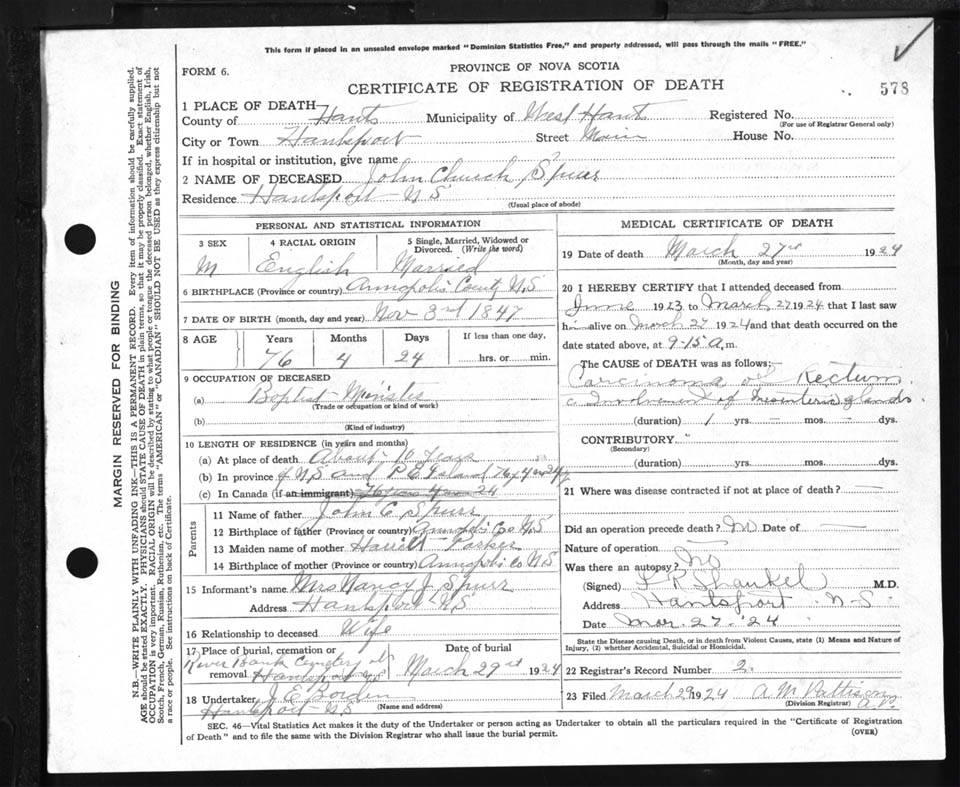 This form if placed in an unsealed envelope marked "Dominion Statistics Free," and properly addressed, will pass through the mails "FREE."
FORM 6.
PROVINCE OF NOVA SCOTIA
CERTIFICATE OF REGISTRATION OF DEATH
578
MARGIN RESERVED FOR BINDING
N.B.—WRITE PLAINLY WITH UNFADING INK—THIS IS A PERMANENT RECORD. Every item of information should be carefully supplied.
AGE should be stated EXACTLY. PHYSICIANS should STATE CAUSE OF DEATH in plain terms, so that it may be properly classified. Exact statement of
OCCUPATION is very important. RACIAL ORIGIN will be described by stating to what people or tongue the deceased person belonged, whether English, Irish,
Scotch, French, German, Russian, Ruthenian, etc. The terms "AMERICAN" or "CANADIAN" SHOULD NOT BE USED as they express citizenship but not
a race or people. See instructions on back of Certificate.
1 PLACE OF DEATH—
County of Hants Municipality of West Hants Registered No.
(For use of Registrar General only)
City or Town Hantsport Street Main House No.
If in hospital or institution, give name
2 NAME OF DECEASED John Church Spurr
Residence Hantsport N S
(Usual place of abode)
PERSONAL AND STATISTICAL INFORMATION
3 SEX 4 RACIAL ORIGIN 5 Single, Married, Widowed or Divorced. (Write the word)
M English Married
6 BIRTHPLACE (Province or country) Annapolis County N.S
7 DATE OF BIRTH (month, day and year) Nov 3rd 1847
8 AGE Years Months Days If less than one day,
76 4 24 hrs. or min.
9 OCCUPATION OF DECEASED
(a) Baptist Minister
(Trade or occupation or kind of work)
(b)
(Kind of industry)
10 LENGTH OF RESIDENCE (in years and months)
(a) At place of death About 10 Years
(b) In province of N.S and P E Island 76 y 4 m 24
(c) In Canada (if an immigrant) 76 years 4 mos 24
Parents
11 Name of father John C Spurr
12 Birthplace of father (Province or country) Annapolis Co N S
13 Maiden name of mother Harriett Parker
14 Birthplace of mother (Province or country) Annapolis Co N.S
15 Informant's name Mrs Nancy J. Spurr
Address Hantsport N S
16 Relationship to deceased Wife
17 Place of burial, cremation or Date of burial
River Bank Cemetery
removal Hantsport March 29 1924
18 Undertaker J. E Borden
(Name and address)
Hantsport N S
MEDICAL CERTIFICATE OF DEATH
19 Date of death March 27 1924
(Month, day and year)
20 I HEREBY CERTIFY that I attended deceased from
June 1923 to March 27 1924 that I last saw
h alive on March 27 1924 and that death occurred on the
date stated above, at 9-15 a.m.
The CAUSE OF DEATH was as follows:—
Carcinoma of Rectum.
c Involvement of Mesenteric glands.
(duration) 1 yrs. mos. dys.
CONTRIBUTORY.
(Secondary)
(duration) yrs. mos. dys.
21 Where was disease contracted if not at place of death?
Did an operation precede death? No Date of
Nature of operation
Was there an autopsy? No
(Signed) F R Shankel M.D.
Address Hantsport N-S
Date Mar. 27-'24
State the Disease causing Death, or in death from Violent Causes, state (1) Means and Nature of
Injury, (2) whether Accidental, Suicidal or Homicidal.
22 Registrar's Record Number 2.
23 Filed March 29 1924 A M Pattison
(Division Registrar)
SEC. 46—Vital Statistics Act makes it the duty of the Undertaker or person acting as Undertaker to obtain all the particulars required in the "Certificate of Registration
of Death" and to file the same with the Division Registrar who shall issue the burial permit.
(OVER)